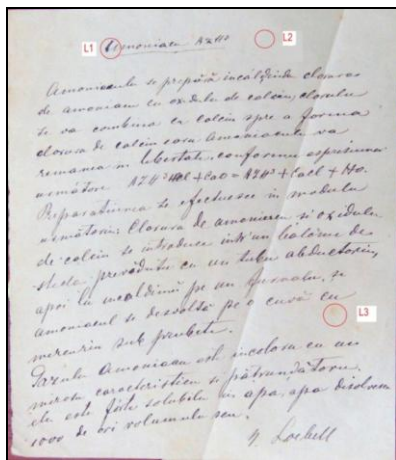 L1 Amoniacu AzH³ L2
Amoniaculu se prepară incăldindu clorura
de amoniacu cu oxidulu de calciu, clorulu
se va combina cu calciu spre a forma
clorura de calciu éra Amoniaculu va
remanea in libertate, conformu espresiunei
urmatóre AzH³HCl + CaO = AzH³ + CaCl + HO.
Preparatiunea se efectuesce in modulu
urmatoriu: Clorura de amoniacu si oxidulu
de calciu se introduce intr'un balonu de
sticla prevedutu cu un tubu abductoriu,
apoi la incaldimu pe un furnalu, si
amoniacul se desvoltă pe o cuvă cu
L3
mercuriu sub prubete.
Gazulu Amoniacu este incoloru cu un
mirosu caracteristicu si pătrundětoru.
elu este fórte solubilu in apa, apa disolvem
1000 de ori volumulu seu.
Loebell